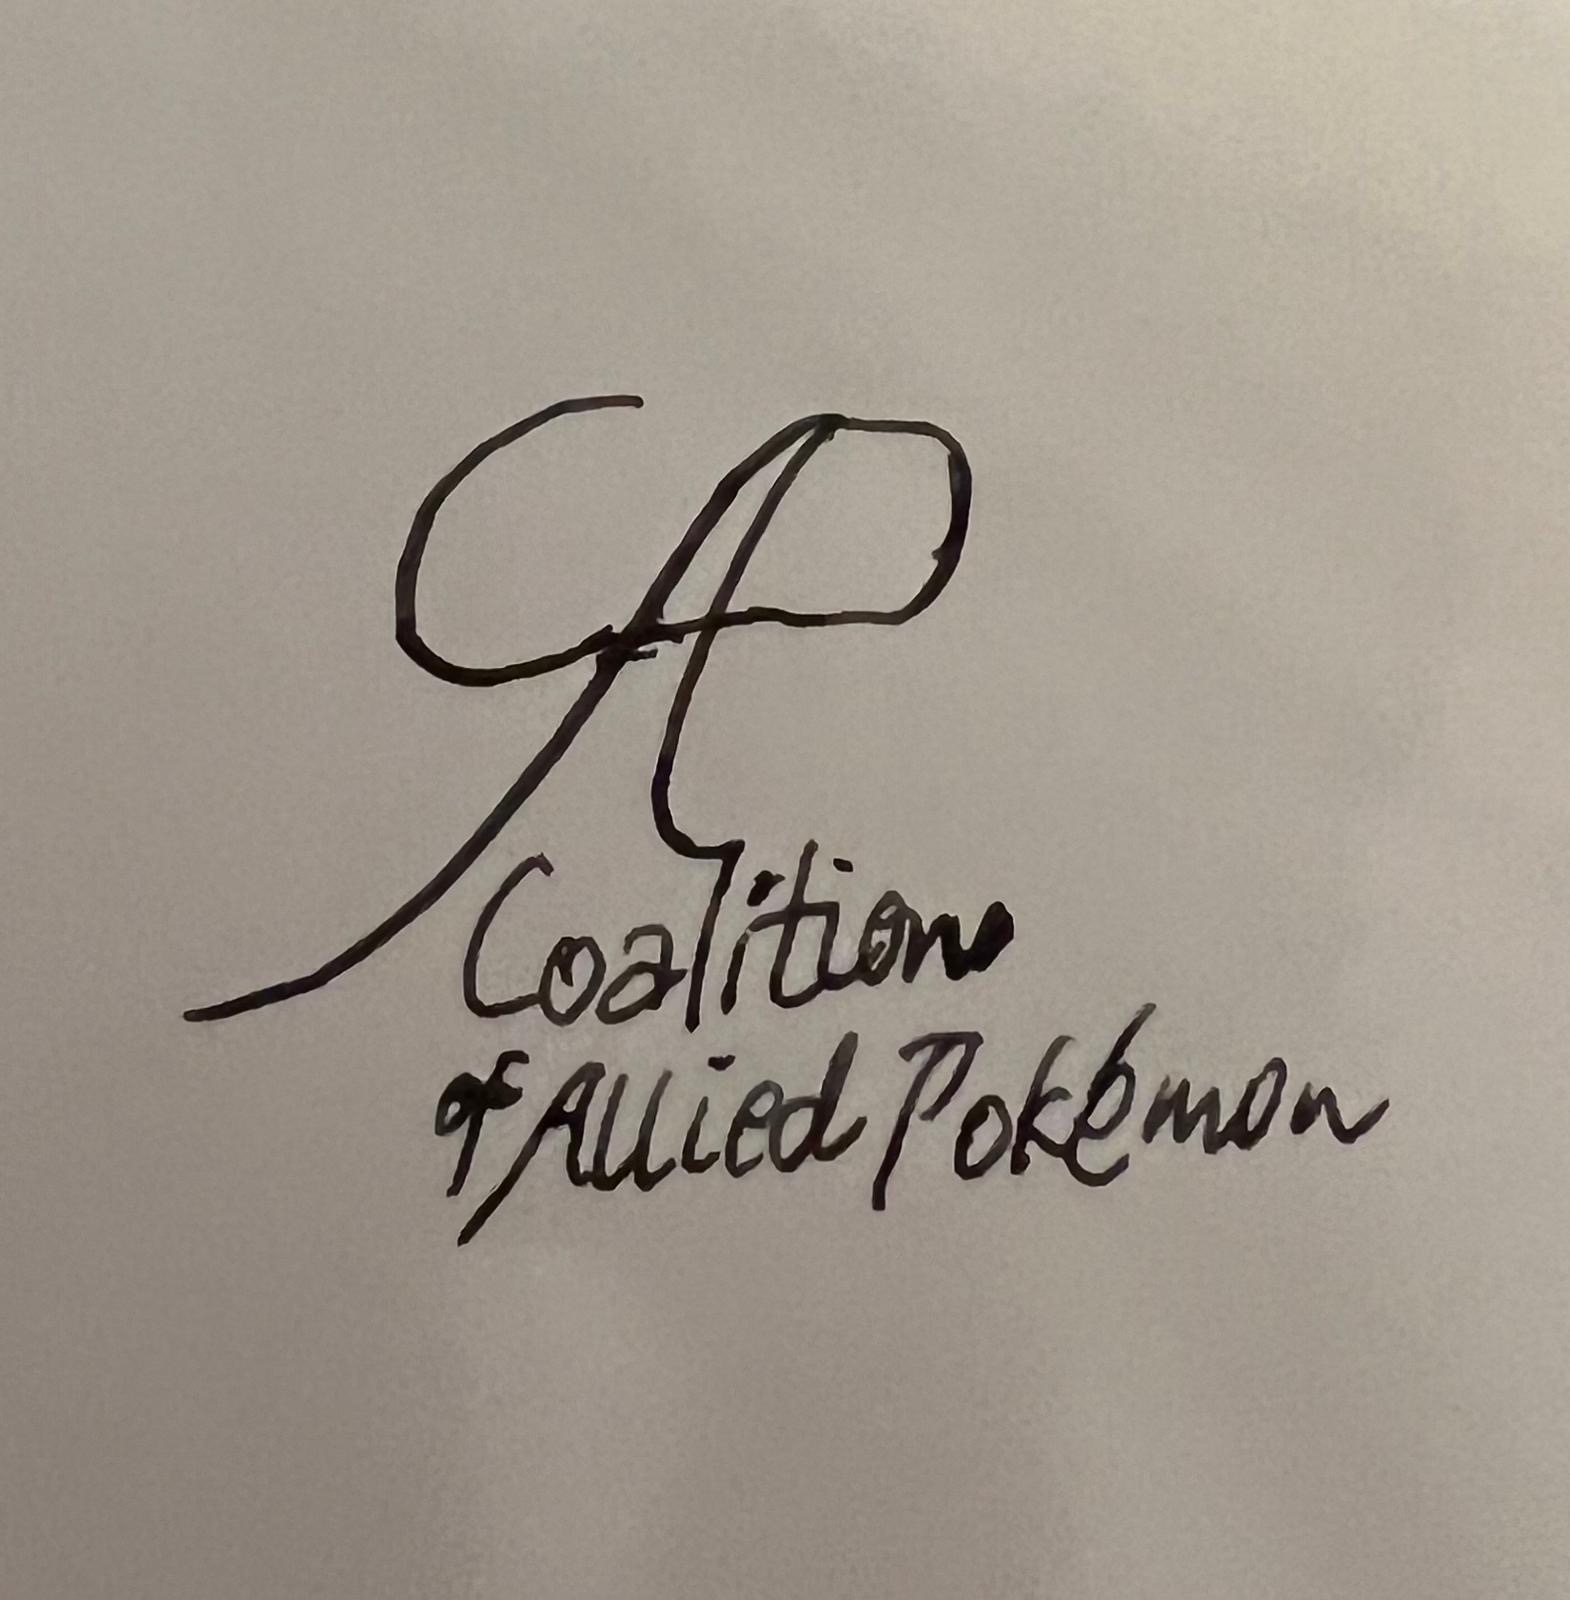 CAP
Coalition
of Allied Pokémon